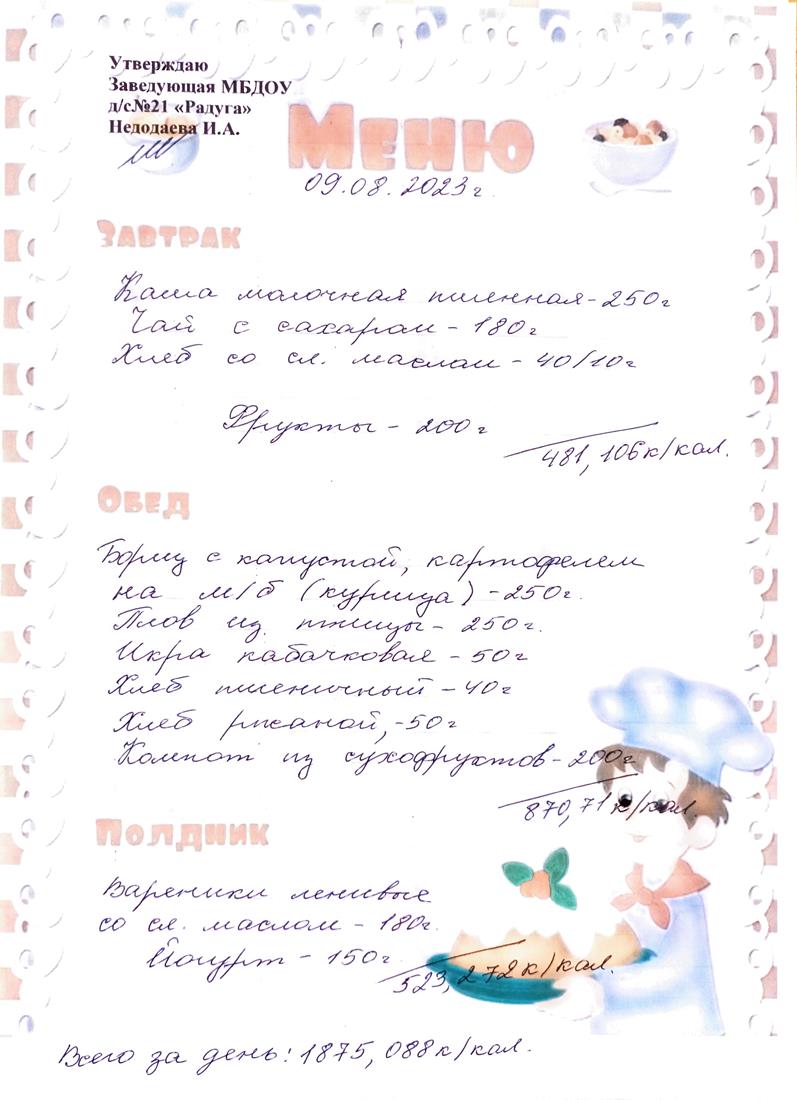 Утверждаю
Заведующая МБДОУ
д/с№21 «Радуга»
Недодаева И.А.
Меню
09.08.2023г.
Завтрак
Каша молочная пшенная-250г
Чай с сахаром-180г
Хлеб со сл. маслом-40/10г
Фрукты-200г
481,106к/кал.
Обед
Борщ с капустой, картофелем
на м/б (курица)-250г.
Плов из птицы-250г.
Икра кабачковая-50г
Хлеб пшеничный-40г
Хлеб ржаной,-50г
Компот из сухофруктов-200г
870,71к/кал.
Полдник
Вареники ленивые
со сл. маслом-180г.
Йогурт-150г.
523,272к/кал.
Всего за день: 1875,088к/кал.